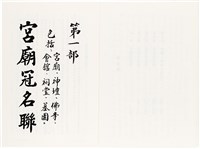 第一部
包括：宮廟·神壇·佛寺·
會館·祠堂·墓園·
宮廟冠名聯